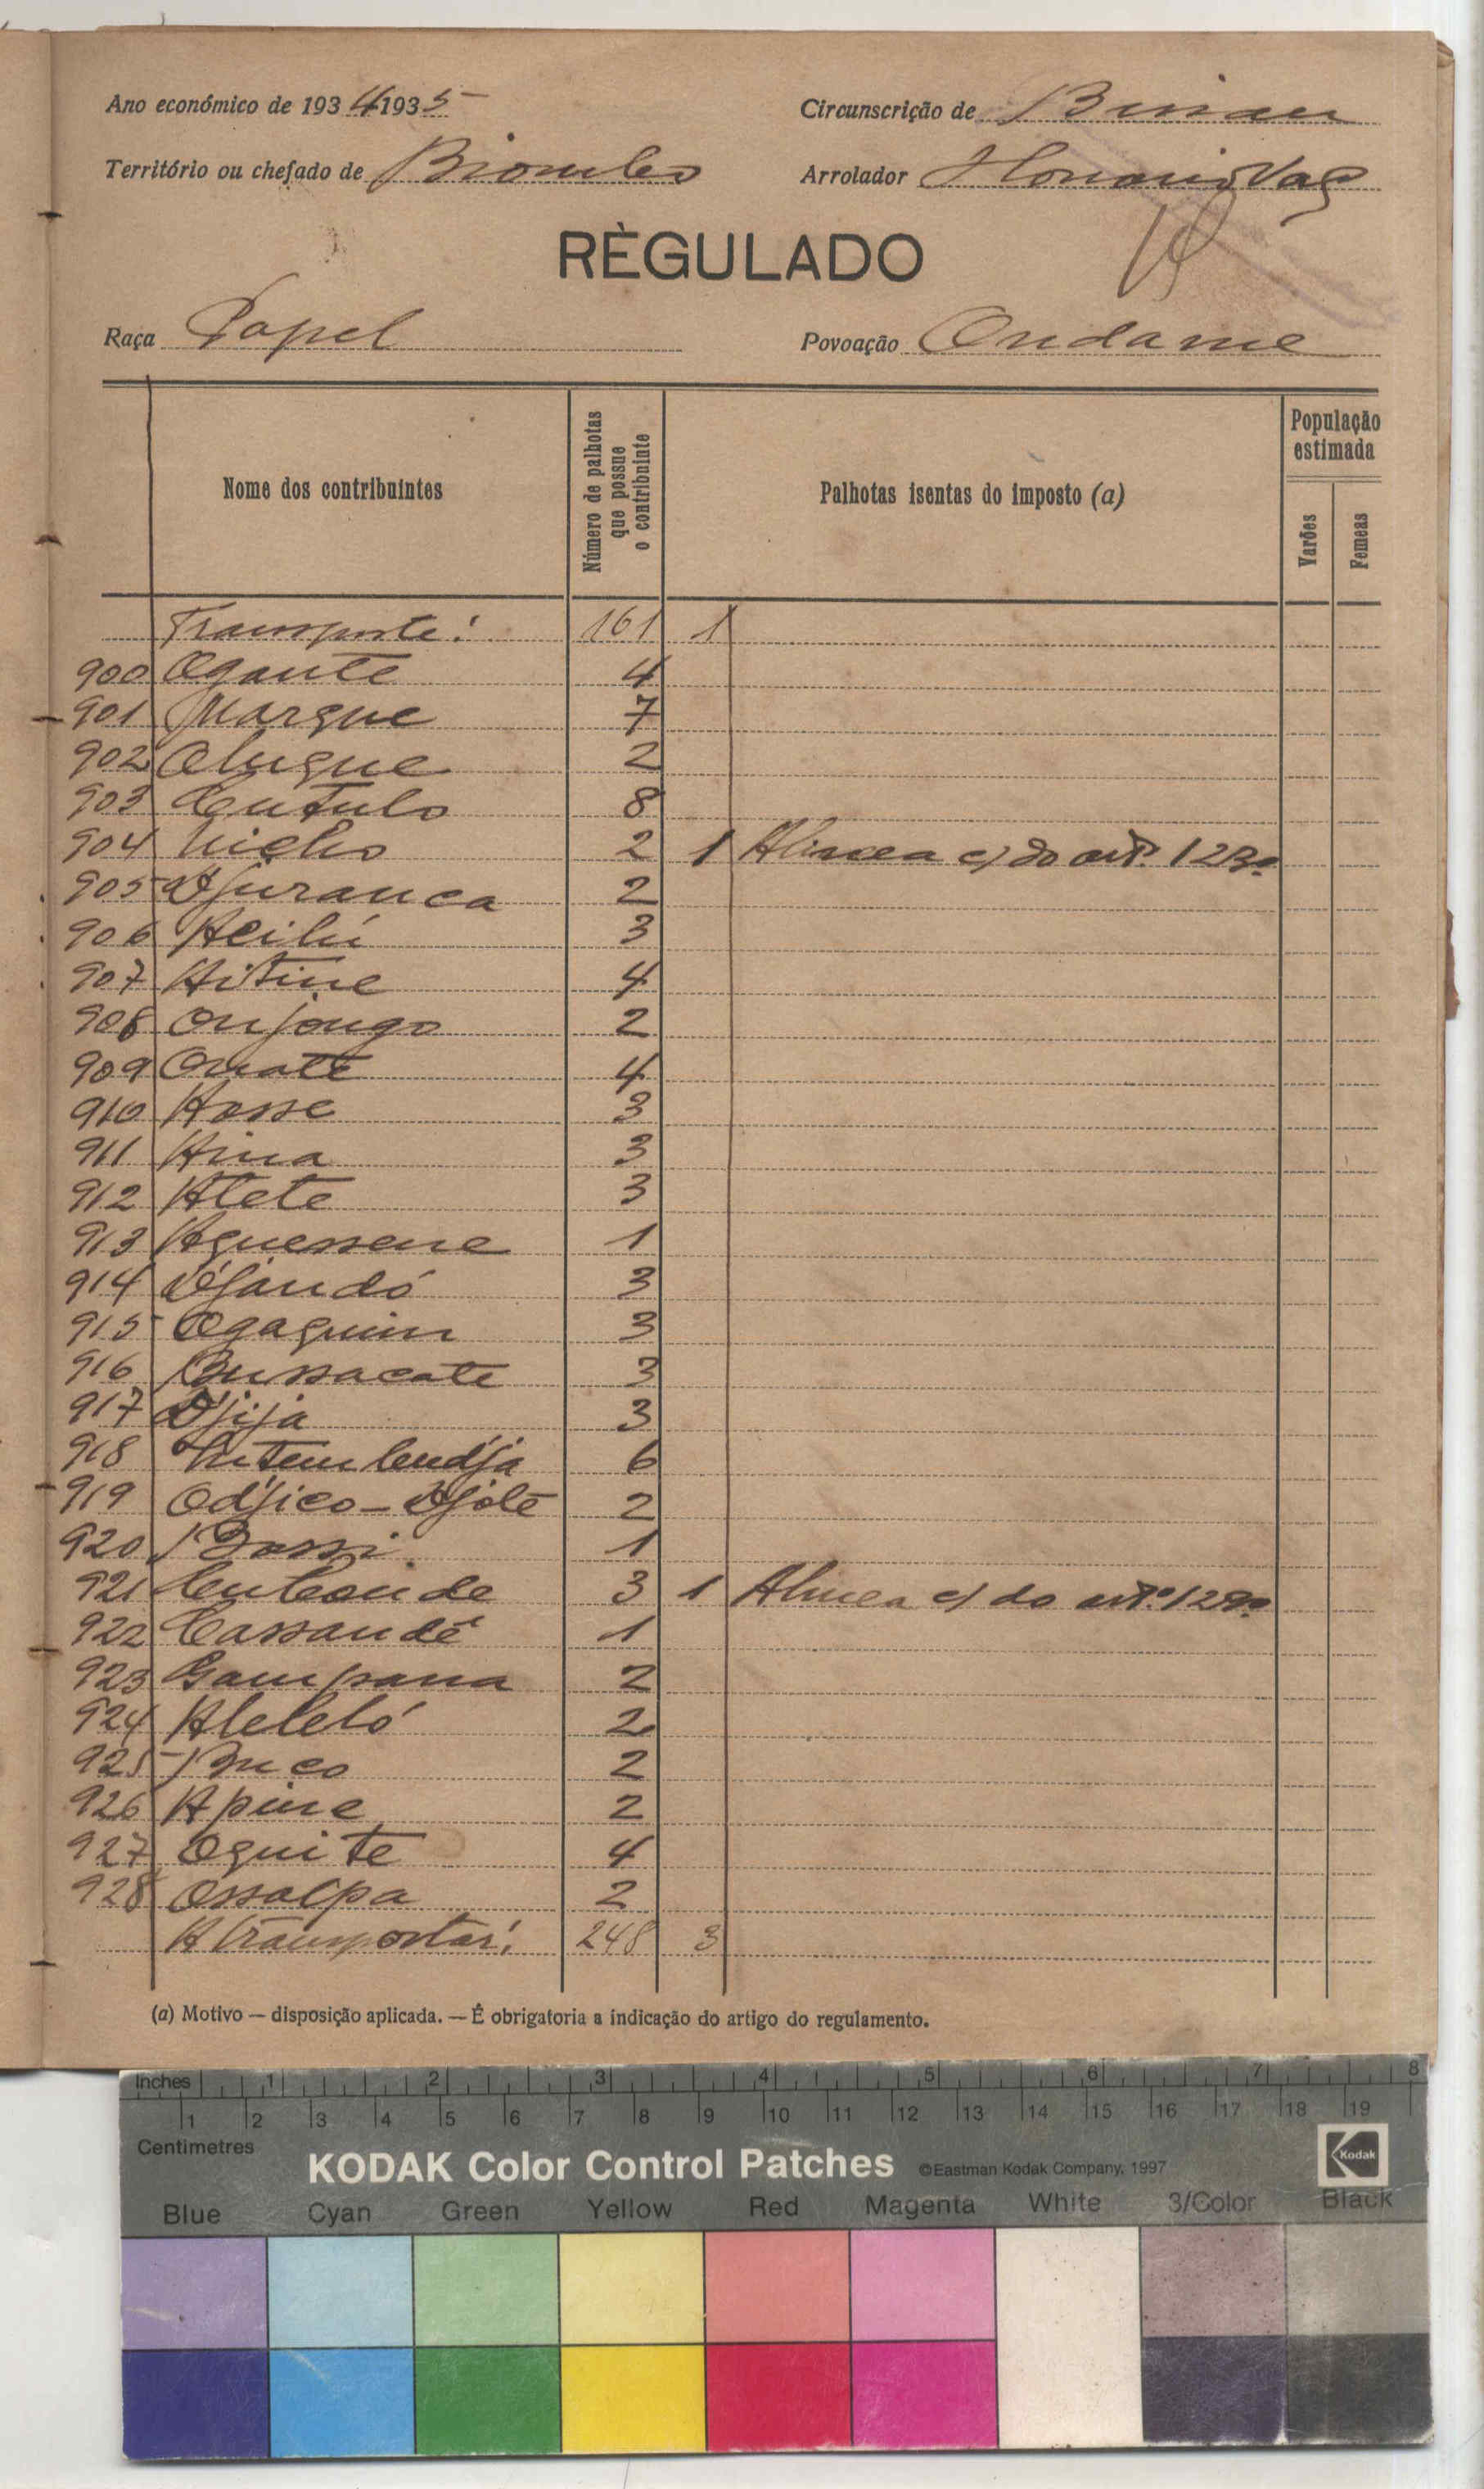 Ano económico de 1934 1935
Circunscrição de Bissau
Território ou chefado de Biombo
Arrolador Honorio Vaz
RÈGULADO
Raça Papel
Povoação Ondame
Nome dos contribuintes
Número de palhotas que possue o contribuinte
Palhotas isentas do imposto (a)
População estimada
Varões
Femeas
Transporte: 161 1
900 Ogante 4
901 Marque 7
902 Olugue 2
903 Cutulo 8
904 2 1 Alinea c) do artº. 123º
905 Djuranca 2
906 3
907 4
908 Onjongo 2
909 Onate 4
910 Hosse 3
911 Hina 3
912 Atete 3
913 Aguessene 1
914 Djandó 3
915 Ogaguim 3
916 Bussacate 3
917 Djija 3
918 6
919 Odjico-Djolé 2
920 Bossi 1
921 3 1 Alinea c) do artº.
922 Cassandé 1
923 Gampana 2
924 Aleleló 2
925 Buco 2
926 Apine 2
927 Oquite 4
928 Ossalpa 2
A transportar: 248 3
(a) Motivo — disposição aplicada. — É obrigatoria a indicação do artigo do regulamento.
Inches 1 2 3 4 5 6 7 8
1 2 3 4 5 6 7 8 9 10 11 12 13 14 15 16 17 18 19
Centimetres
KODAK Color Control Patches ©Eastman Kodak Company, 1997 Kodak
Blue Cyan Green Yellow Red Magenta White 3/Color Black